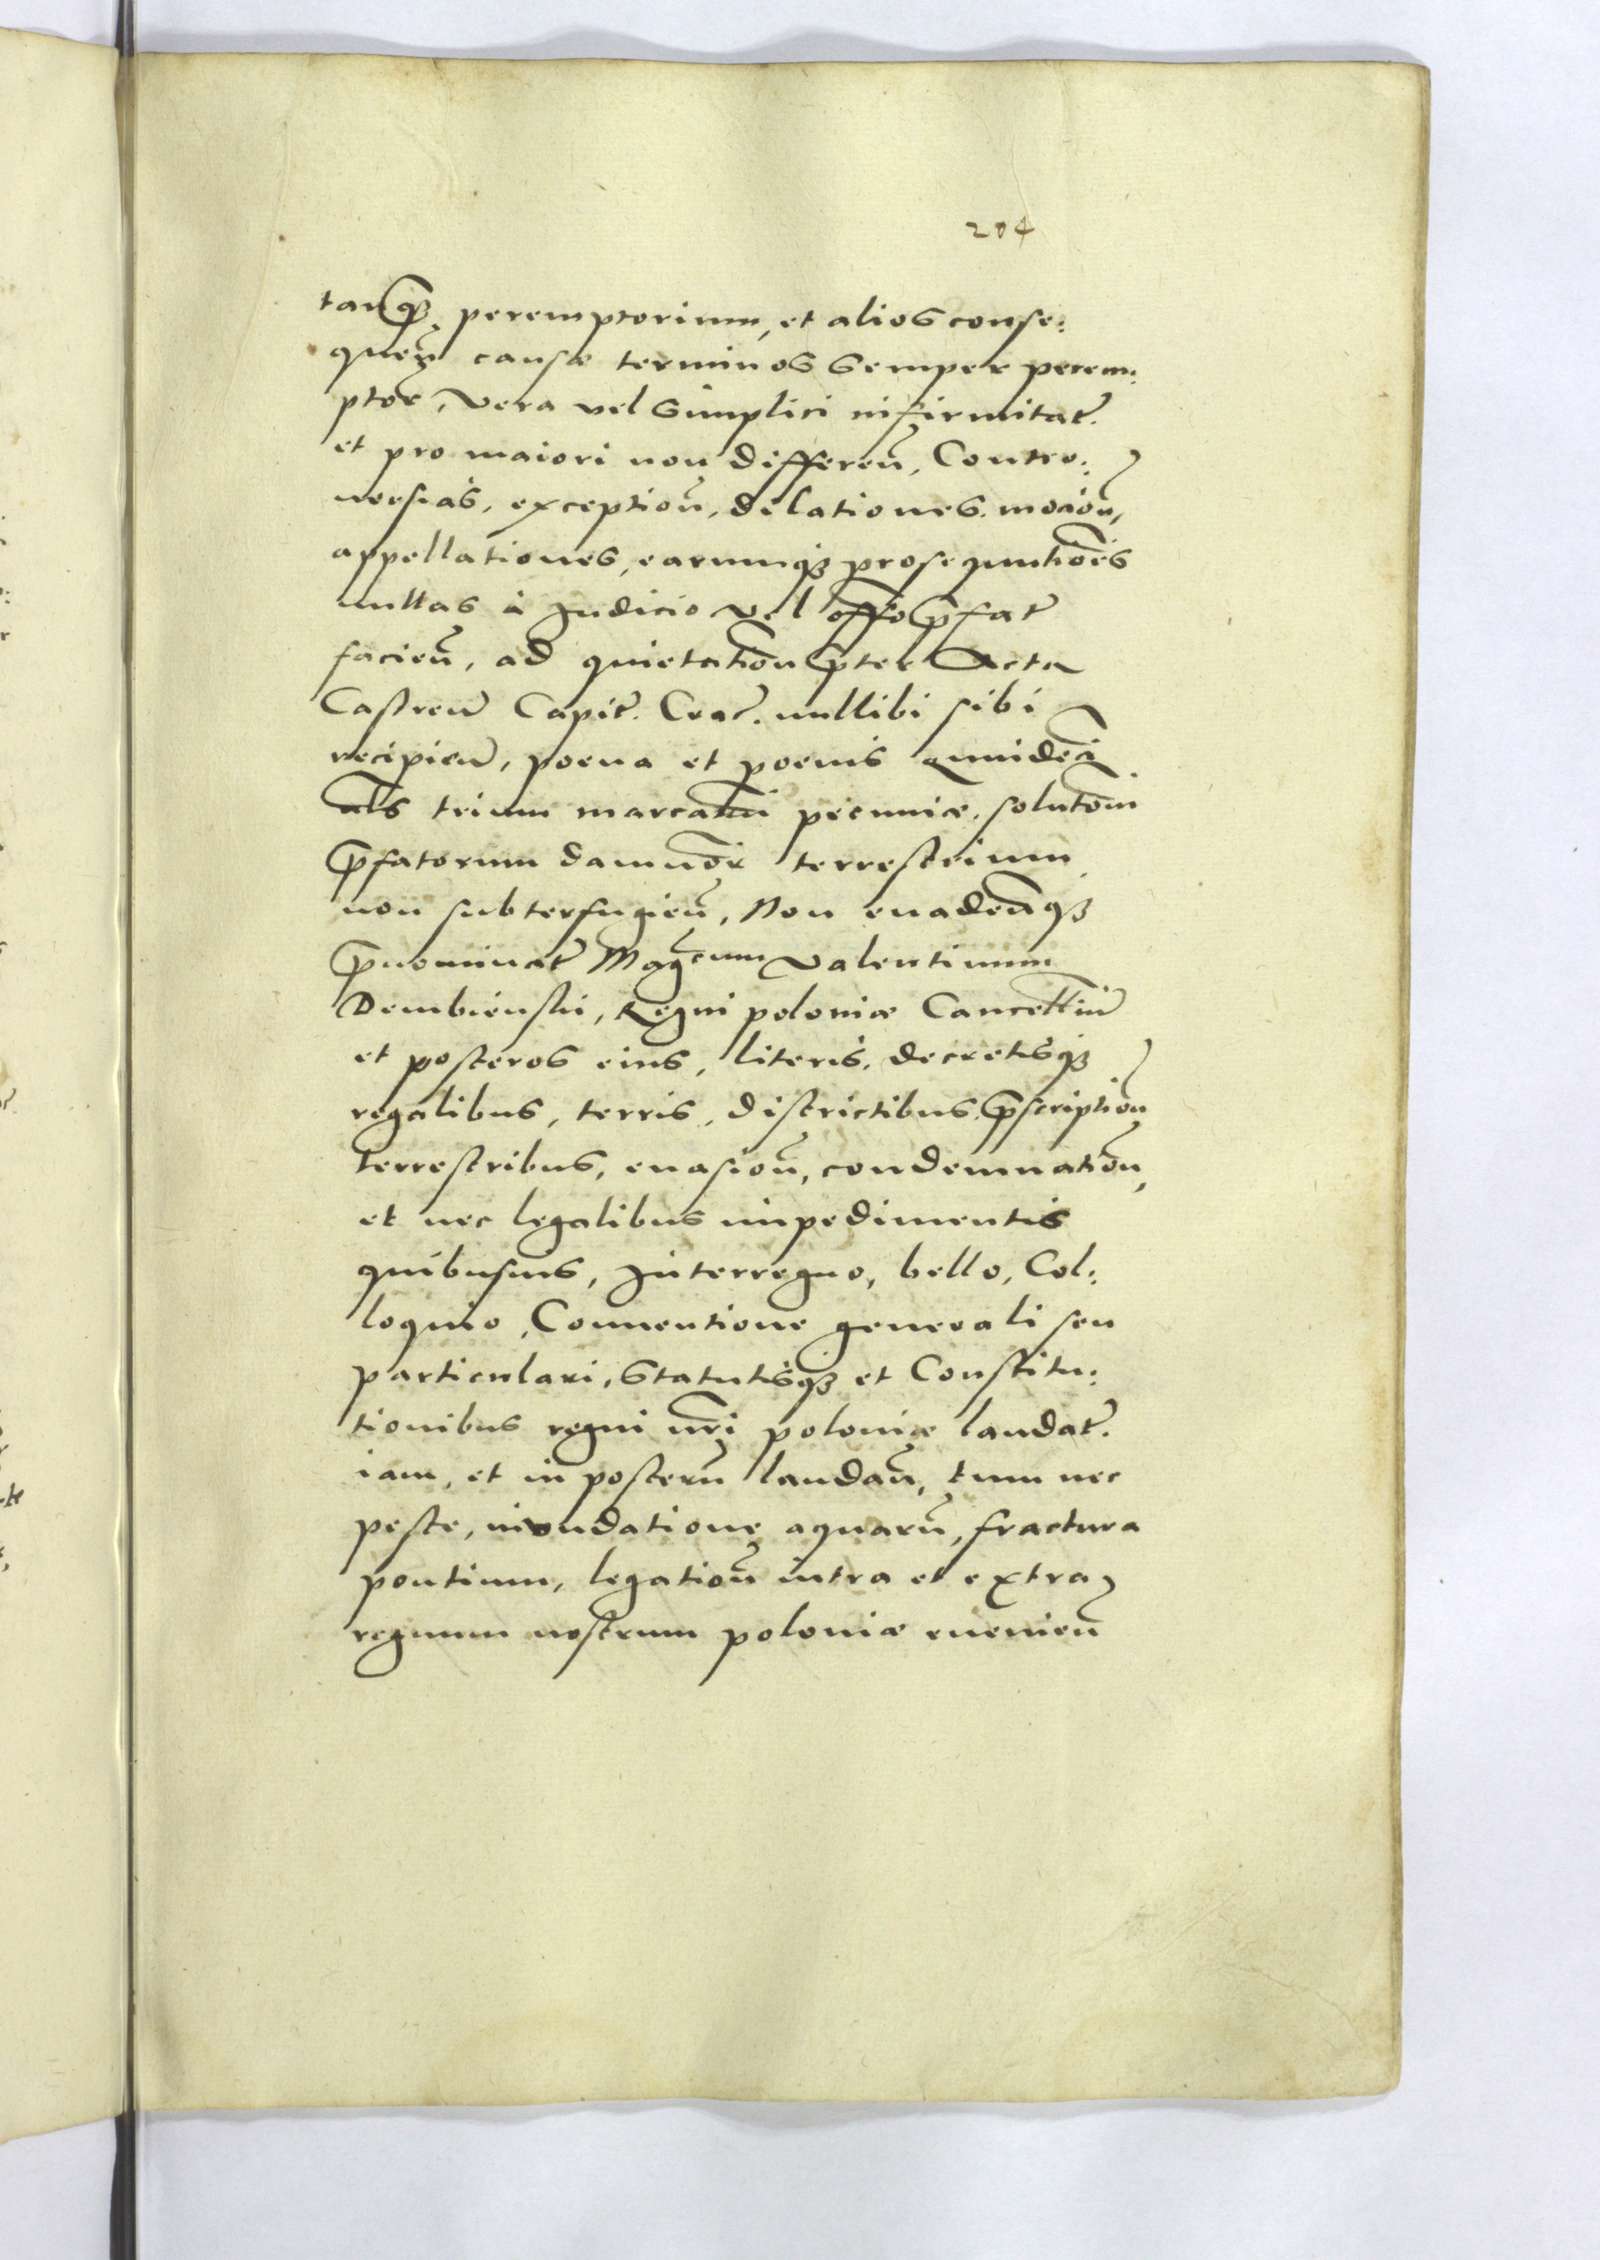 204
tanq̃ꝫ peremptorium, et alios conse:
queñ causæ terminos semper perem:
ptor̃, vera vel simplici infirmitat̃.
et pro maiori non differeñ, Contro:
uersias, exceptioñ, dilationes, mocioñ,
appellationes, earumqꝫ prosequutiões
nullas à Iudicio vel offo p̃fat̃
facieñ, ad quietatiõn p̃ter Acta
Castreñ Capit̃. Crac̃. nullibi sibi
recipieñ, poena et poenis quindeci̅
als trium marcarũ pecuniæ, solutõni
p̃fatorum damnor̃ terrestrium
non subterfugieñ, Non euadeñqꝫ
p̃nominat̃ Magcum Valentinum
Dembienski, Regni poloniæ Cancelliũ
et posteros eius, literis, decretisqꝫ
regalibus, terris, districtibus, p̃scriptioñ
terrestribus, euasioñ, condemnatioñ,
et nec legalibus impedimentis
quibusuis, Interregno, bello, Col:
loquio, Conuentione generali seu
particulari, Statutisqꝫ et Constitu:
tionibus regni nr̃i poloniæ laudat̃.
iam, et in posterũ laudañ, tum nec
peste, inundatione aquarũ, fractura
pontium, legatioñ intra et extra
regnum nostrum poloniæ euenieñ